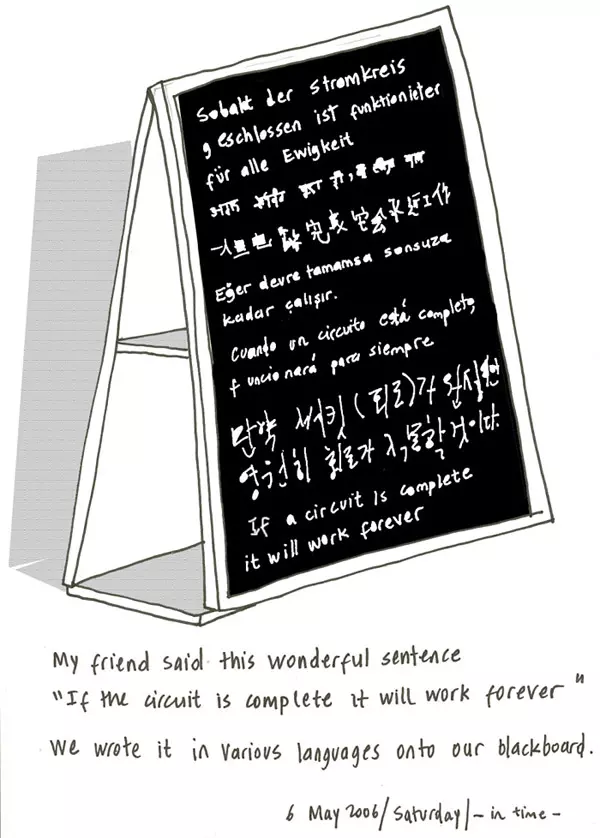 Sobald der Stromkreis
geschlossen ist funktionieter
für alle Ewigkeit
一旦电 完成 它会永远工作
Eğer devre tamamsa sonsuza
kadar çalışır.
Cuando un circuito está completo,
funcionará para siempre
만약 서킷 (회로)가 완성되면
영원히 회로가 작동할 것이다.
If a circuit is complete
it will work forever
My friend said this wonderful sentence
"If the circuit is complete it will work forever"
We wrote it in various languages onto our blackboard.
6 May 2006/Saturday/-in time-